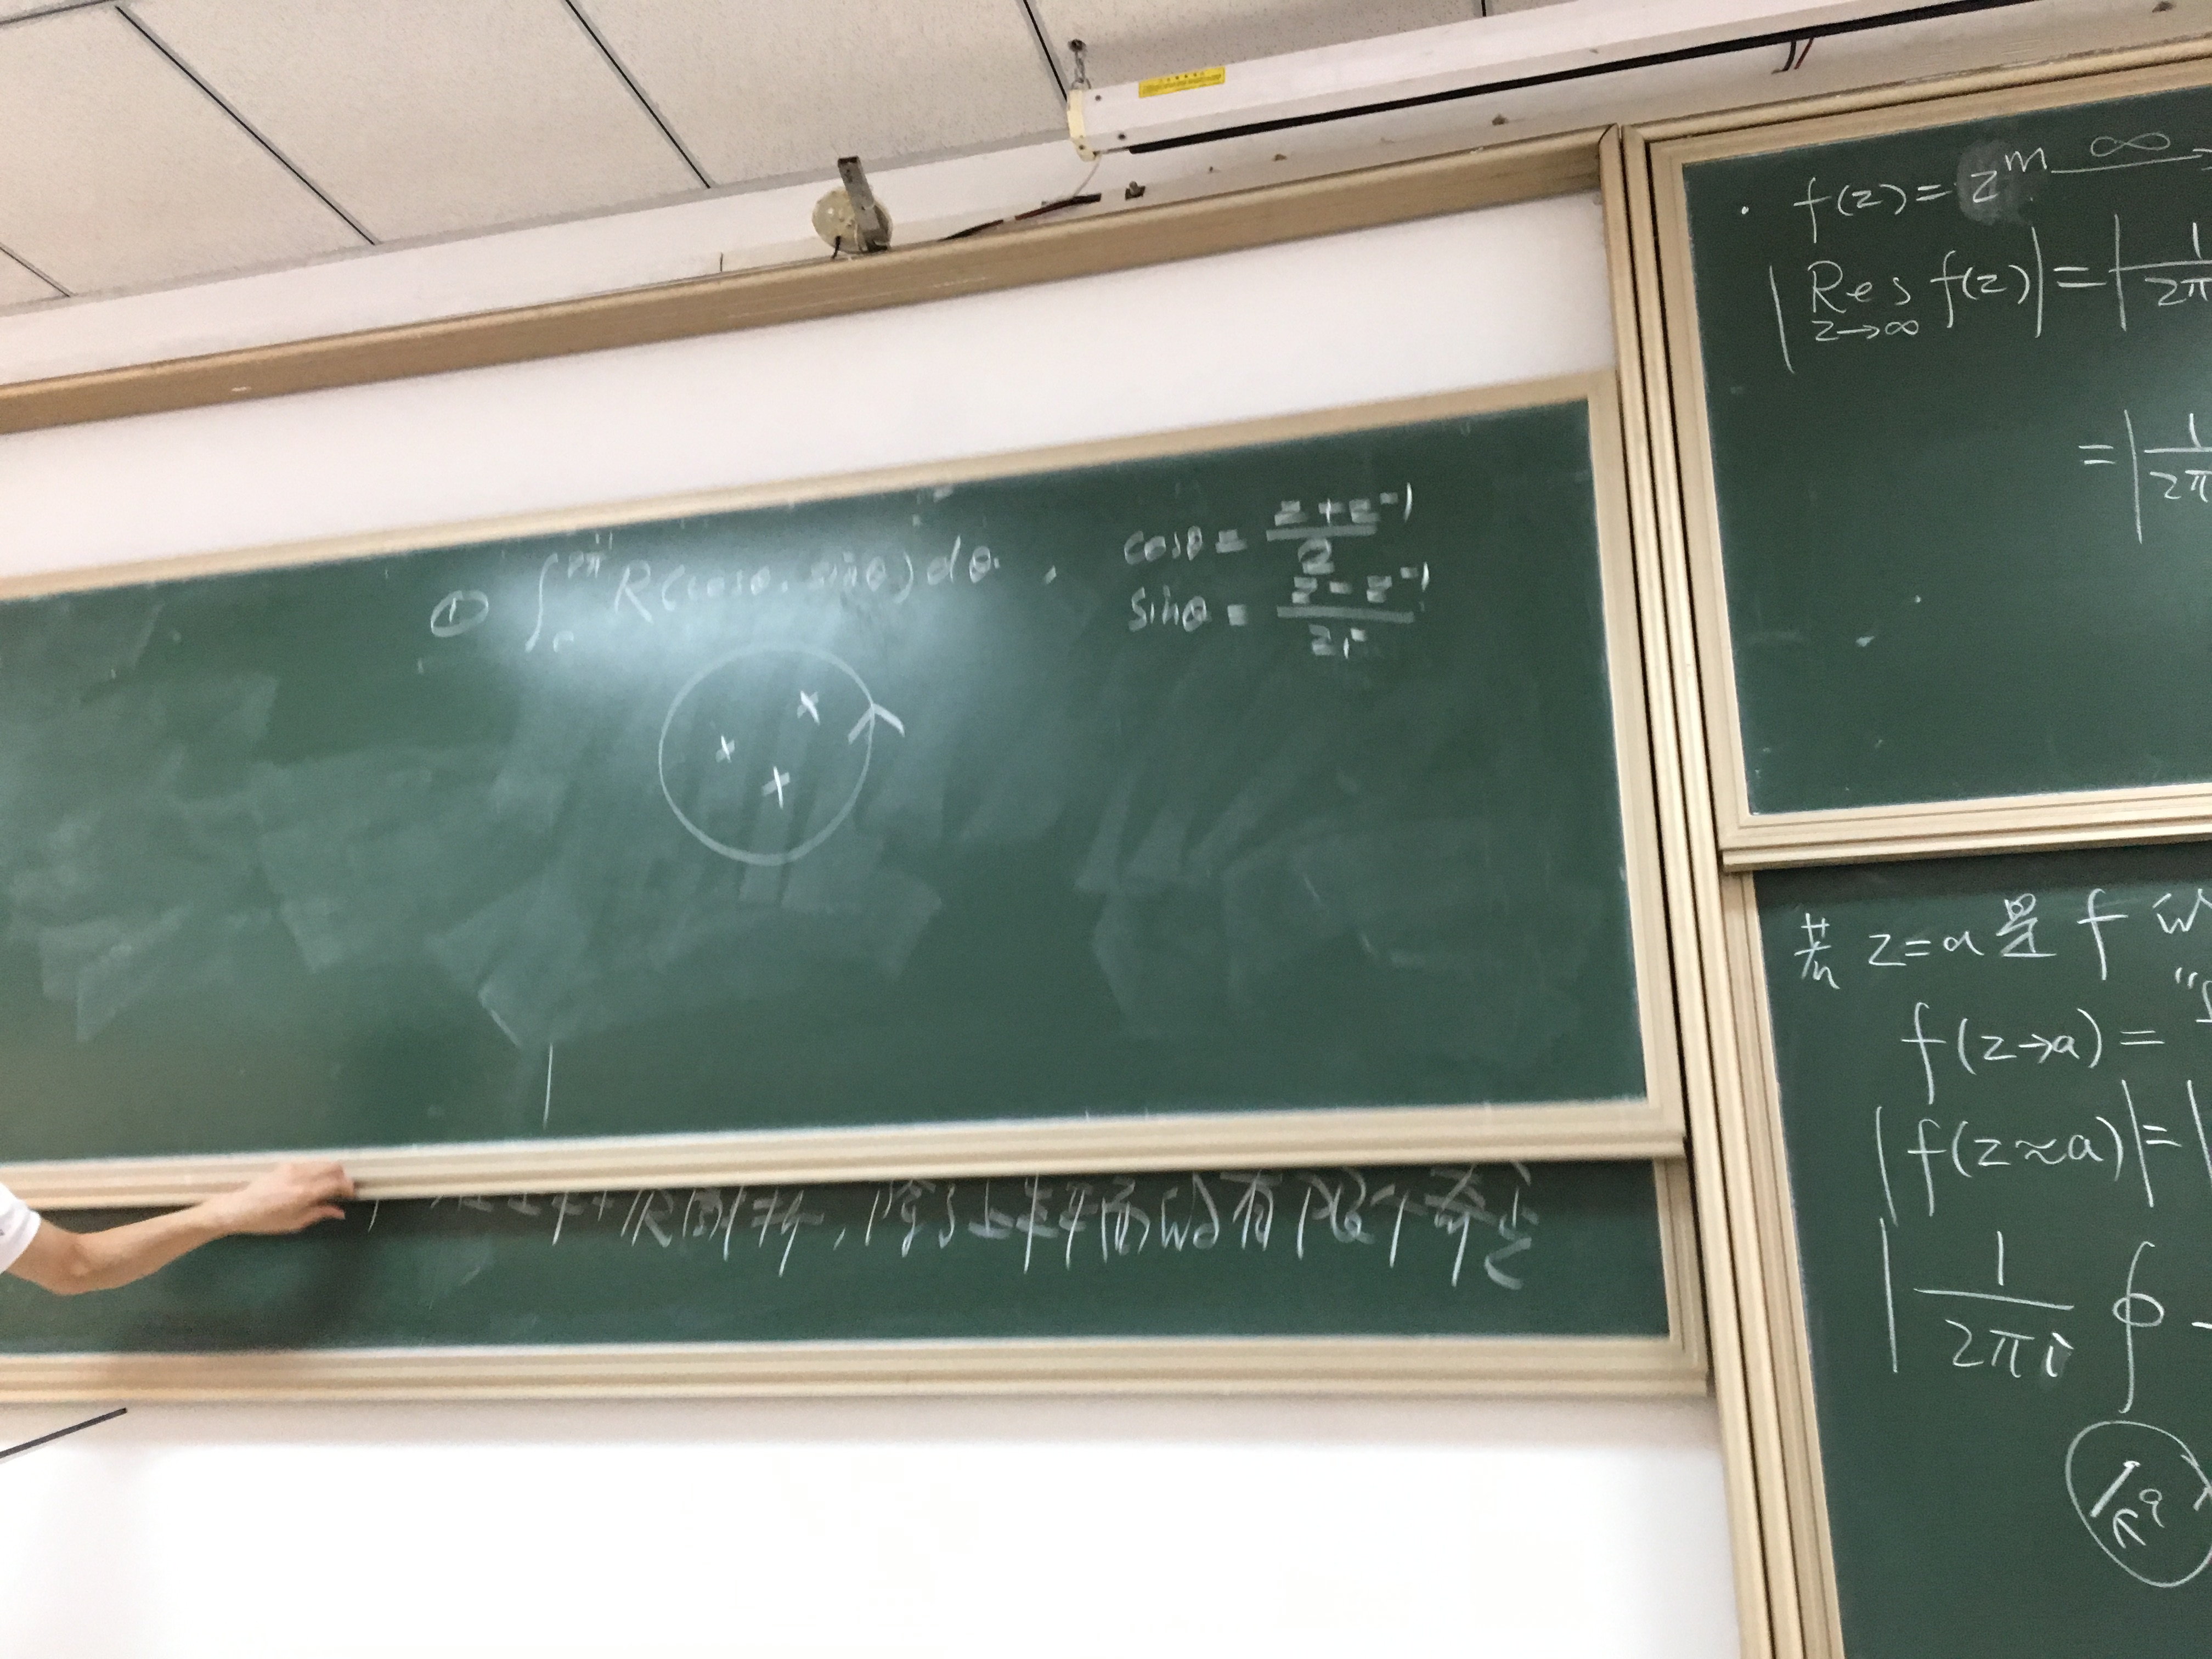 ① ∫₀^{2π} R(cosθ, sinθ) dθ ,
cosθ = (z + z⁻¹)/2
sinθ = (z - z⁻¹)/2i
除了上半平面的有限个奇点
· f(z) = z^m ∞
|Res f(z)| = |1/2π
z→∞
= |1/2π
若 z=a 是 f 的
f(z→a) = "
|f(z≈a)| = |
|1/2πi ∮